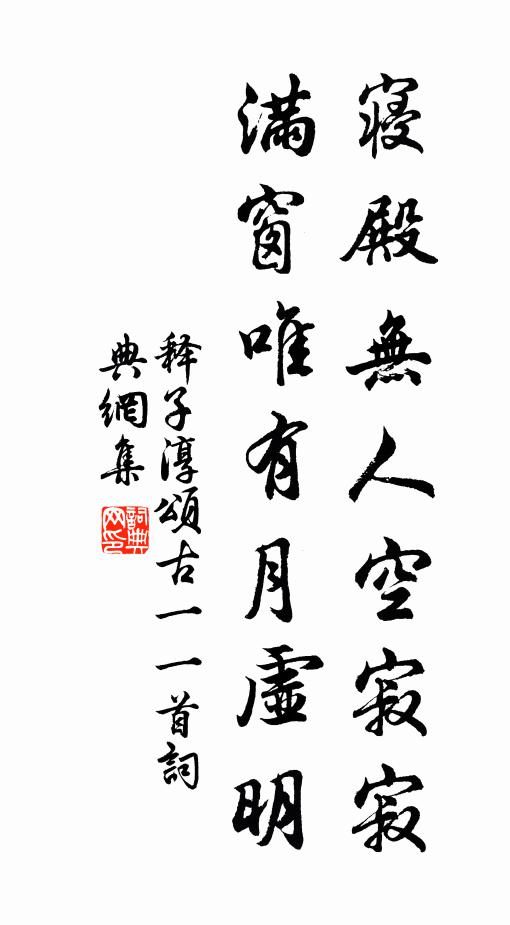 寢殿無人空寂寂
滿窗唯有月虛明
释子淳頌古一一首詞
典網集
詞典网印